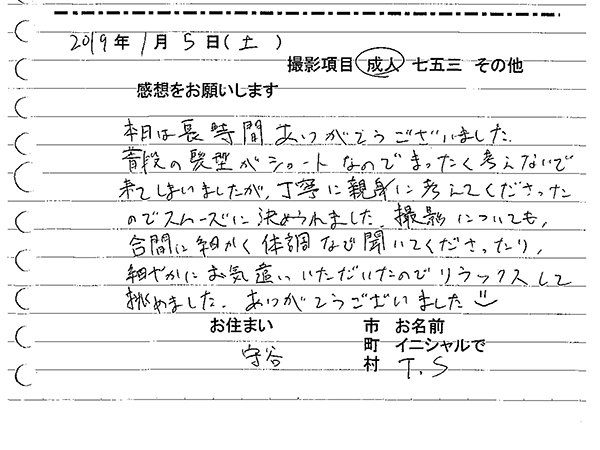 2019年1月5日(土)
撮影項目 成人 七五三 その他
感想をお願いします
本日は長時間ありがとうございました.
普段の髪型がショートなのでまったく考えないで
来てしまいましたが, 丁寧に親身に考えてくださった
のでスムーズに決められました. 撮影についても,
合間に細かく体調など聞いてくださったり,
細やかにお気遣いいただいたのでリラックスして
挑めました. ありがとうございました
お住まい 市 お名前
町 イニシャルで
守谷 村 T.S